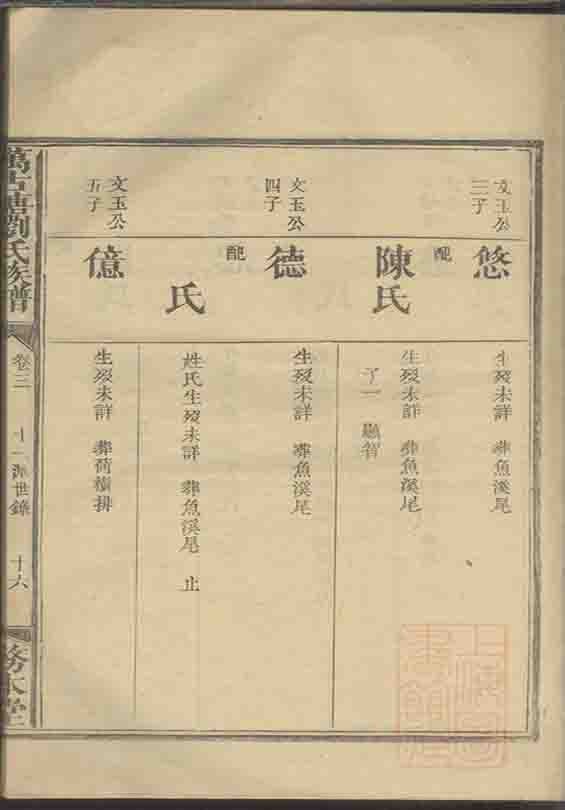 文玉公三子
悠
生歿未詳 葬魚溪尾
配
陳氏
生歿未詳 葬魚溪尾
子一 顯智
文玉公四子
德
生歿未詳 葬魚溪尾
配
氏
姓氏生歿未詳 葬魚溪尾 止
文玉公五子
億
生歿未詳 葬荷橫排
劉氏族譜
卷三
十一派世錄
十六
務本堂